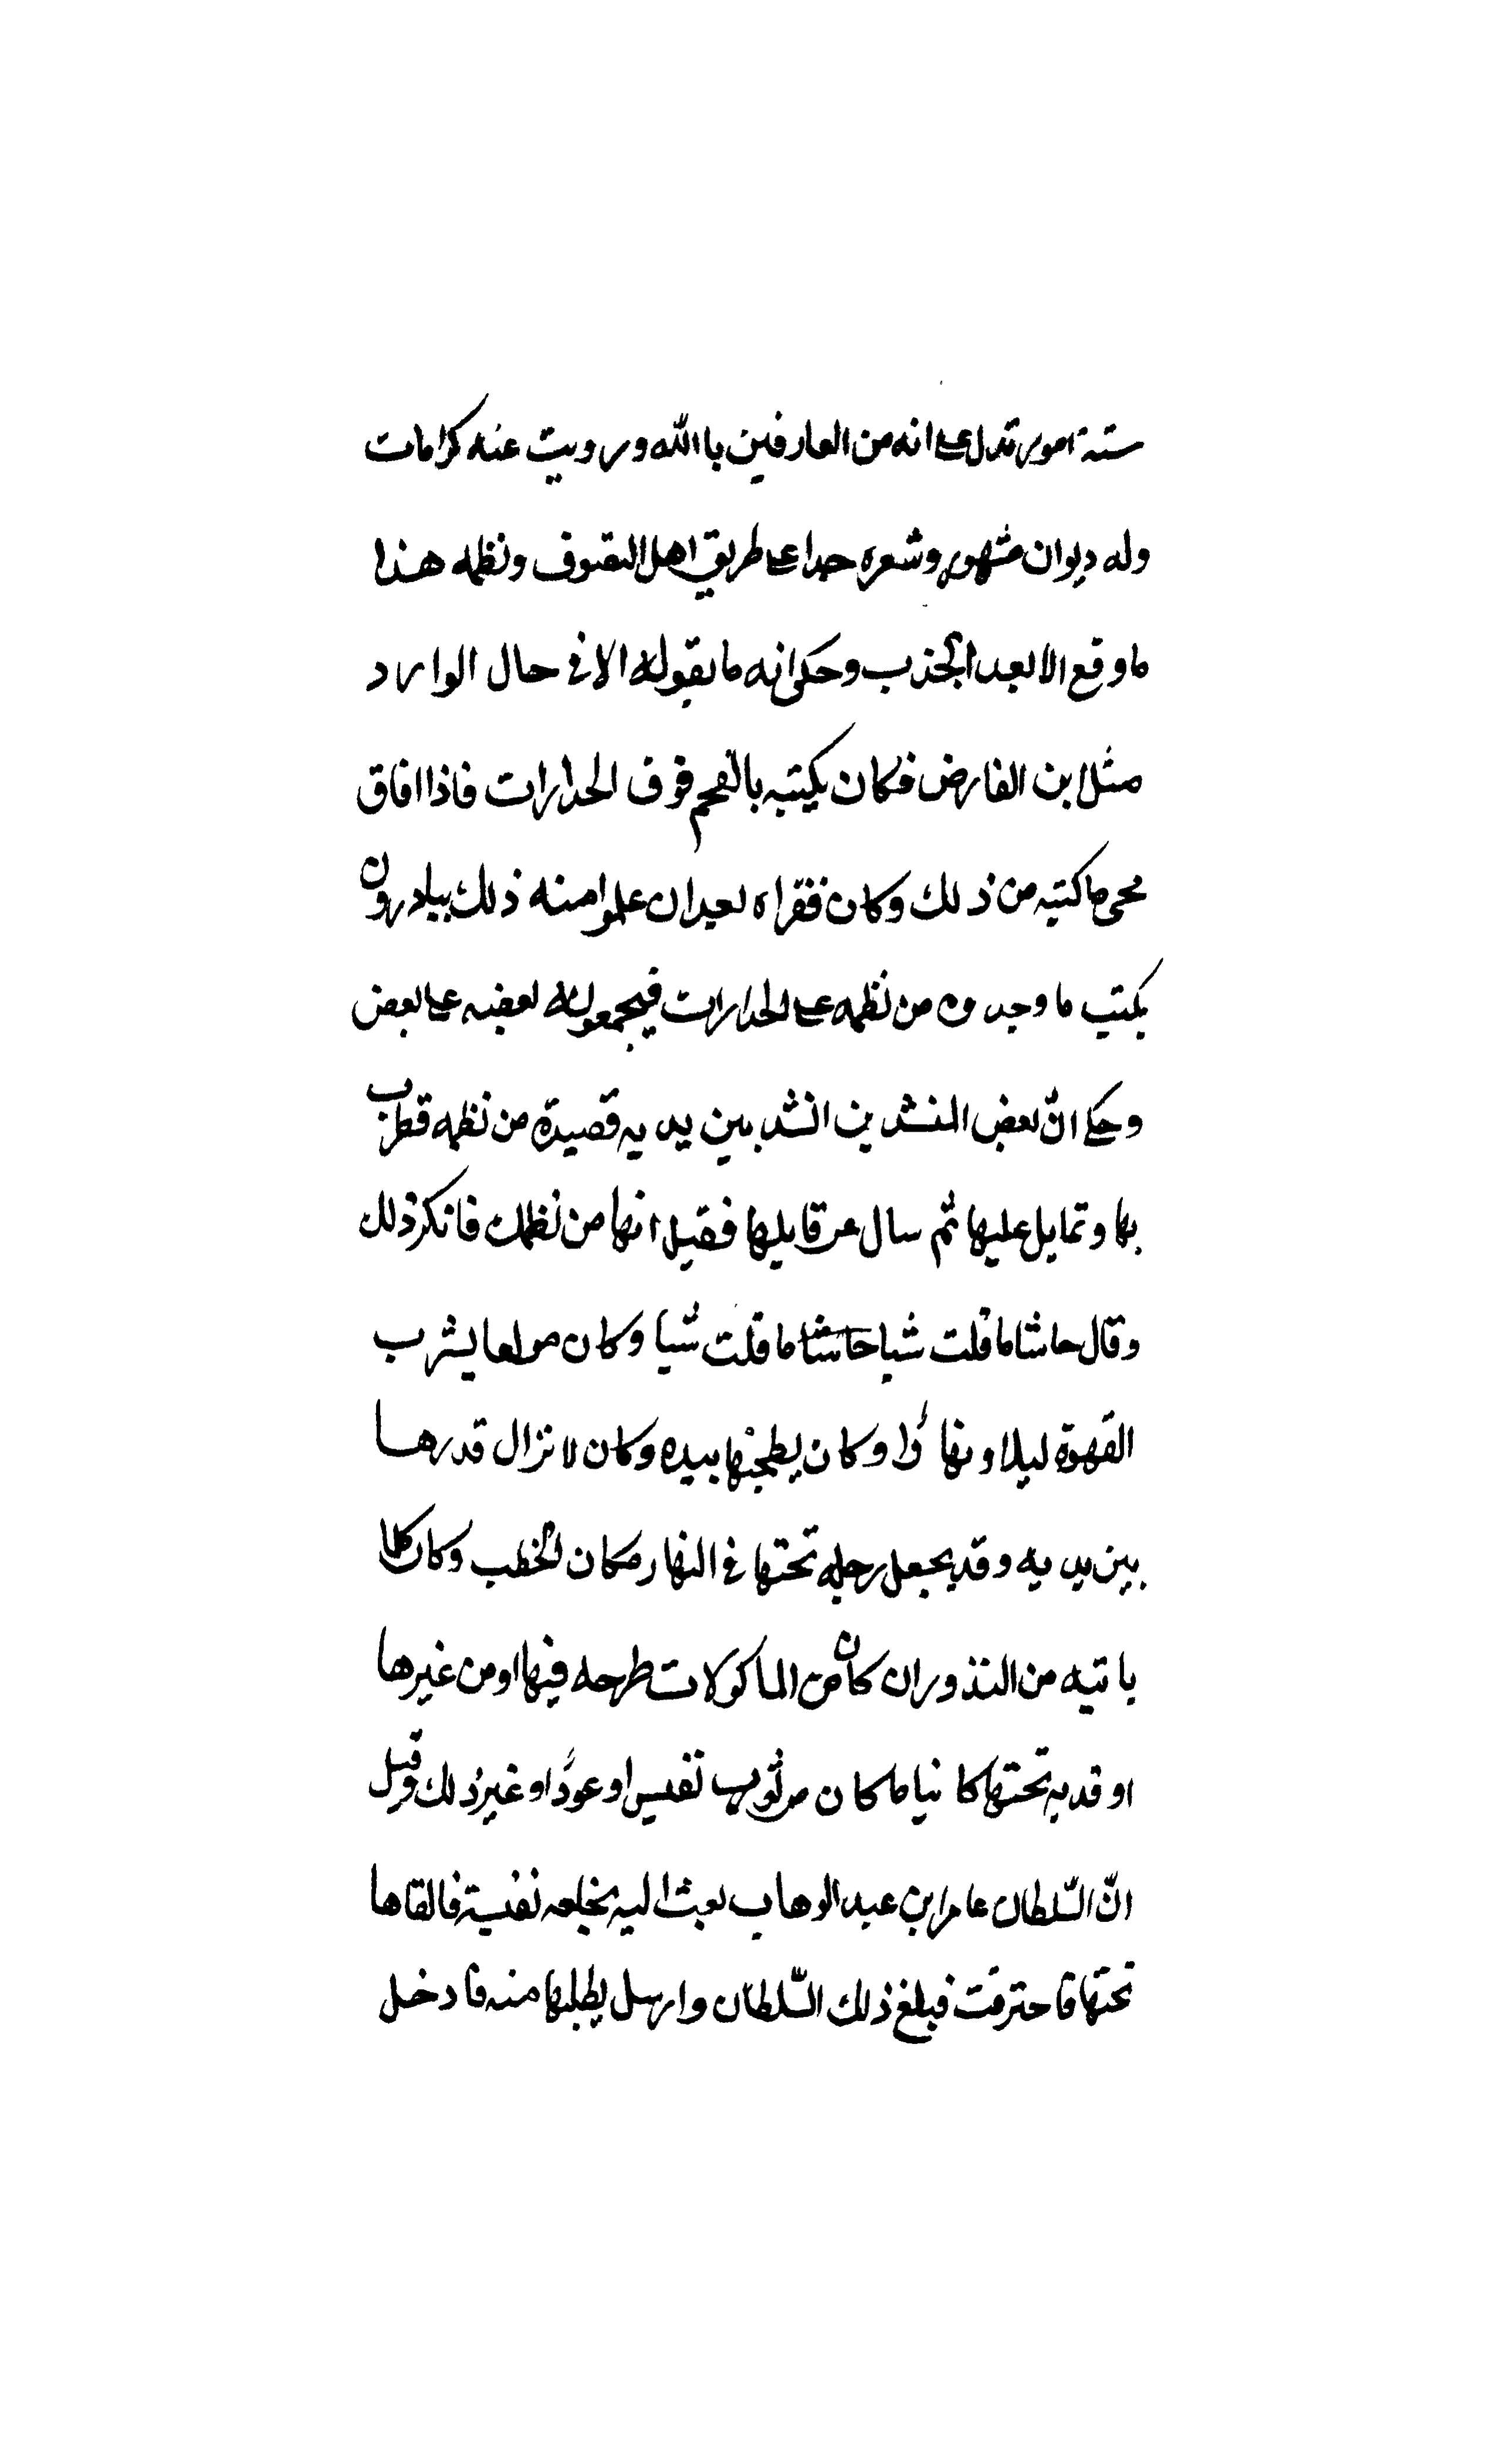 ستة امور تدل على انه من العارفين باالله ورويت عنه كرامات
وله ديوان مشهور وشعره جدا على طريق اهل التصوف ونظمه هذا
ما وقع الا بعد الجذب وحكى انه ما يقوله الا في حال الوارد
مثل ابن الفارض فكان يكتبه بالفحم فوق الجدارات فاذا افاق
محى ما كتبه من ذلك وكان فقراه بعد ان علموا منه ذلك يبادرون
بكتب ما وجدوه من نظمه على الجدارات فيجمعونه بعضه على بعض
وحكي انّ بعض المنشدين انشد بين يديه قصيدة من نظمه فطرب
بها وتمايل عليها ثم سال عن قايلها فقيل انها من نظمك فانكر ذلك
وقال حاشا ما قلت شيا حاشا ما قلت شيا وكان مولعا بشرب
القهوة ليلا ونهارا وكان يطبخها بيده وكان لا تزال قدرها
بين يديه وقد يجعل رجله تحتها في النهار مكان الحطب وكان كلما
ياتيه من النذور ان كان من الماكولات طرحه فيها او من غيرها
اوقد به تحتها كاينا ما كان من ثوب نفيس او عودًا او غير ذلك وقيل
انّ السّلطان عامر ابن عبد الوهاب بعث اليه بخلعه نفيسة فالقاها
تحتها فاحترقت فبلغ ذلك السّلطان وارسل يطلبها منه فادخل